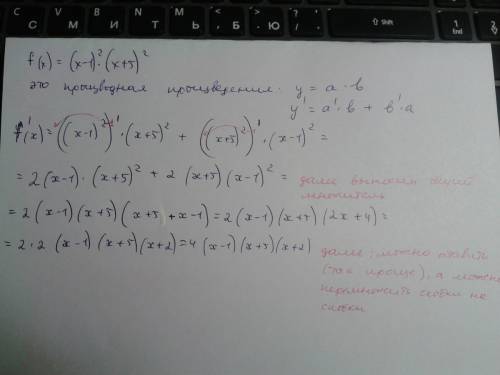 f(x) = (x-1)²·(x+5)²
это производная произведения: y = a·b
y' = a'·b + b'·a
f'(x) = ((x-1)²)'·(x+5)² + ((x+5)²)'·(x-1)² =
= 2(x-1)·(x+5)² + 2(x+5)(x-1)² = далее выносим общий
множитель
= 2(x-1)(x+5)(x+5+x-1) = 2(x-1)(x+5)(2x+4) =
= 2·2(x-1)(x+5)(x+2) = 4(x-1)(x+5)(x+2)
далее: можно оставить
(так проще), а можно
перемножить скобки на
скобки